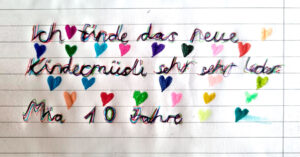 Ich finde das neue
Kindermüsli sehr sehr lecker
Mia 10 Jahre